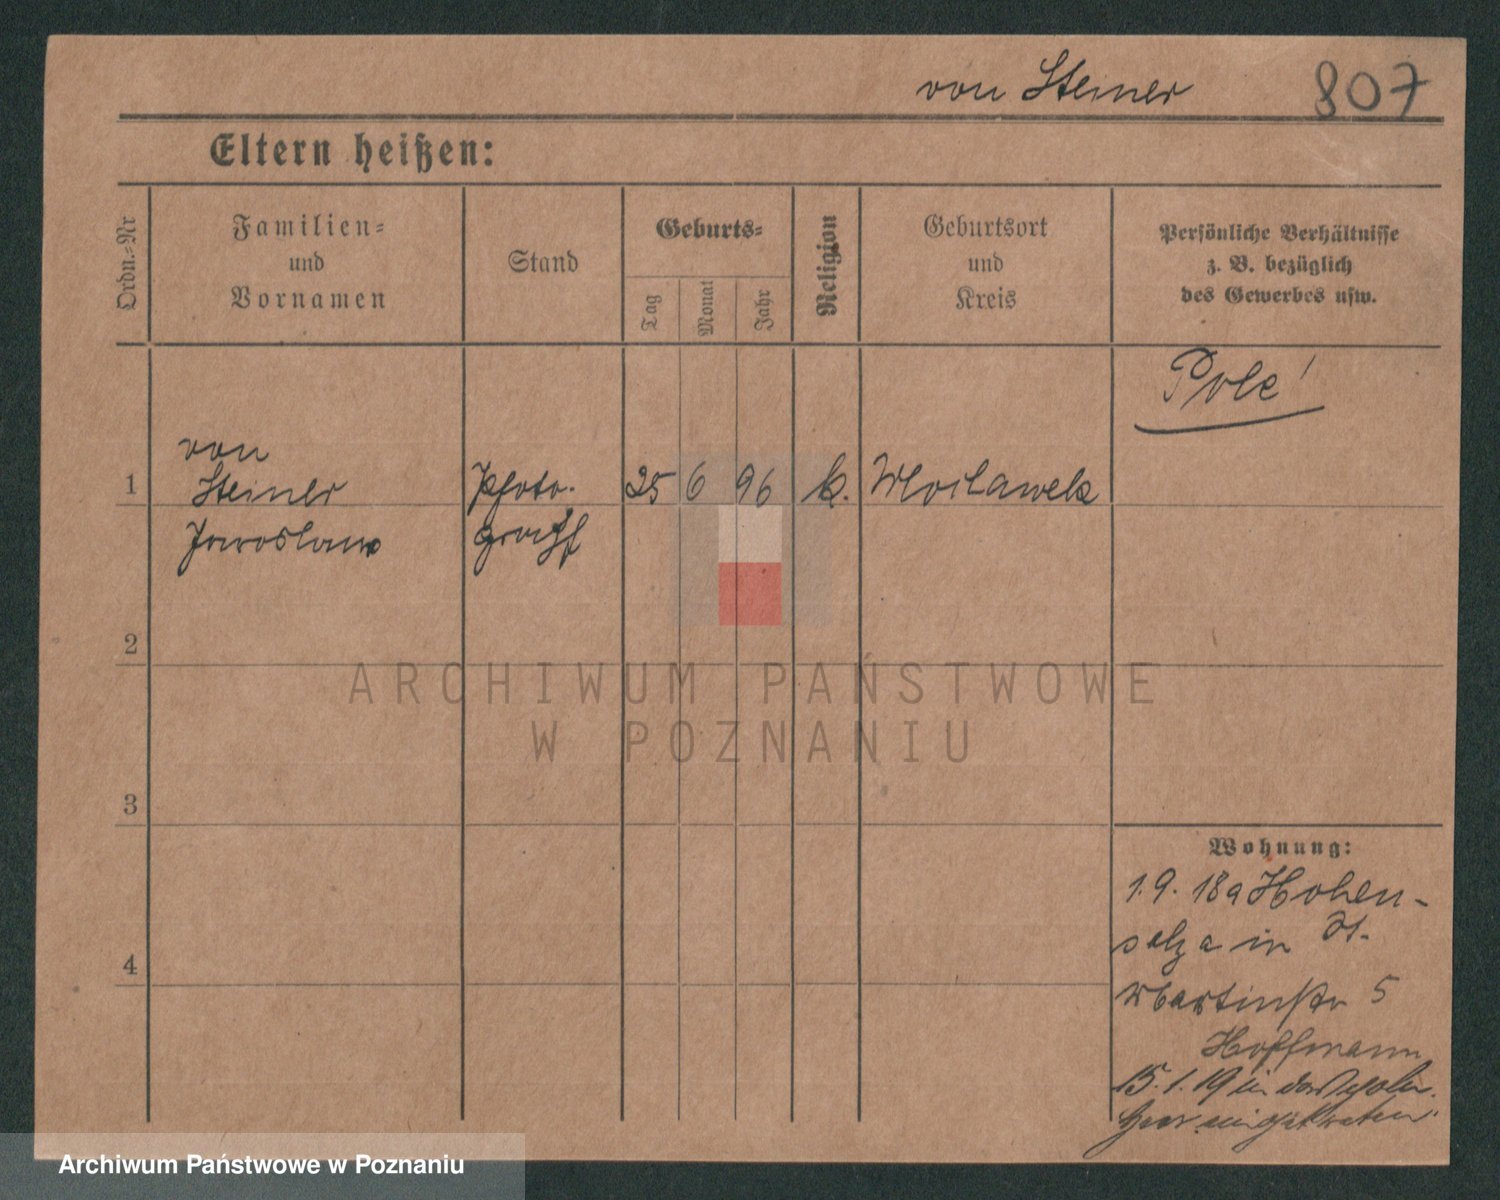 von Steiner 807
Eltern heißen:
Ordn.-Nr
Familien-
und
Vornamen
Stand
Geburts-
Tag
Monat
Jahr
Religion
Geburtsort
und
Kreis
Persönliche Verhältnisse
z. B. bezüglich
des Gewerbes usw.
Pole!
von
1 Steiner Photo- 25 6 96 k. Wloclawek
Jaroslaus graph
2
ARCHIWUM PAŃSTWOWE
W POZNANIU
3
Wohnung:
1.9.18 a Hohen-
salza in St.
4
Martinstr 5
Hoffmann
15.1.19 in das poln.
Heer eingetreten.
Archiwum Państwowe w Poznaniu